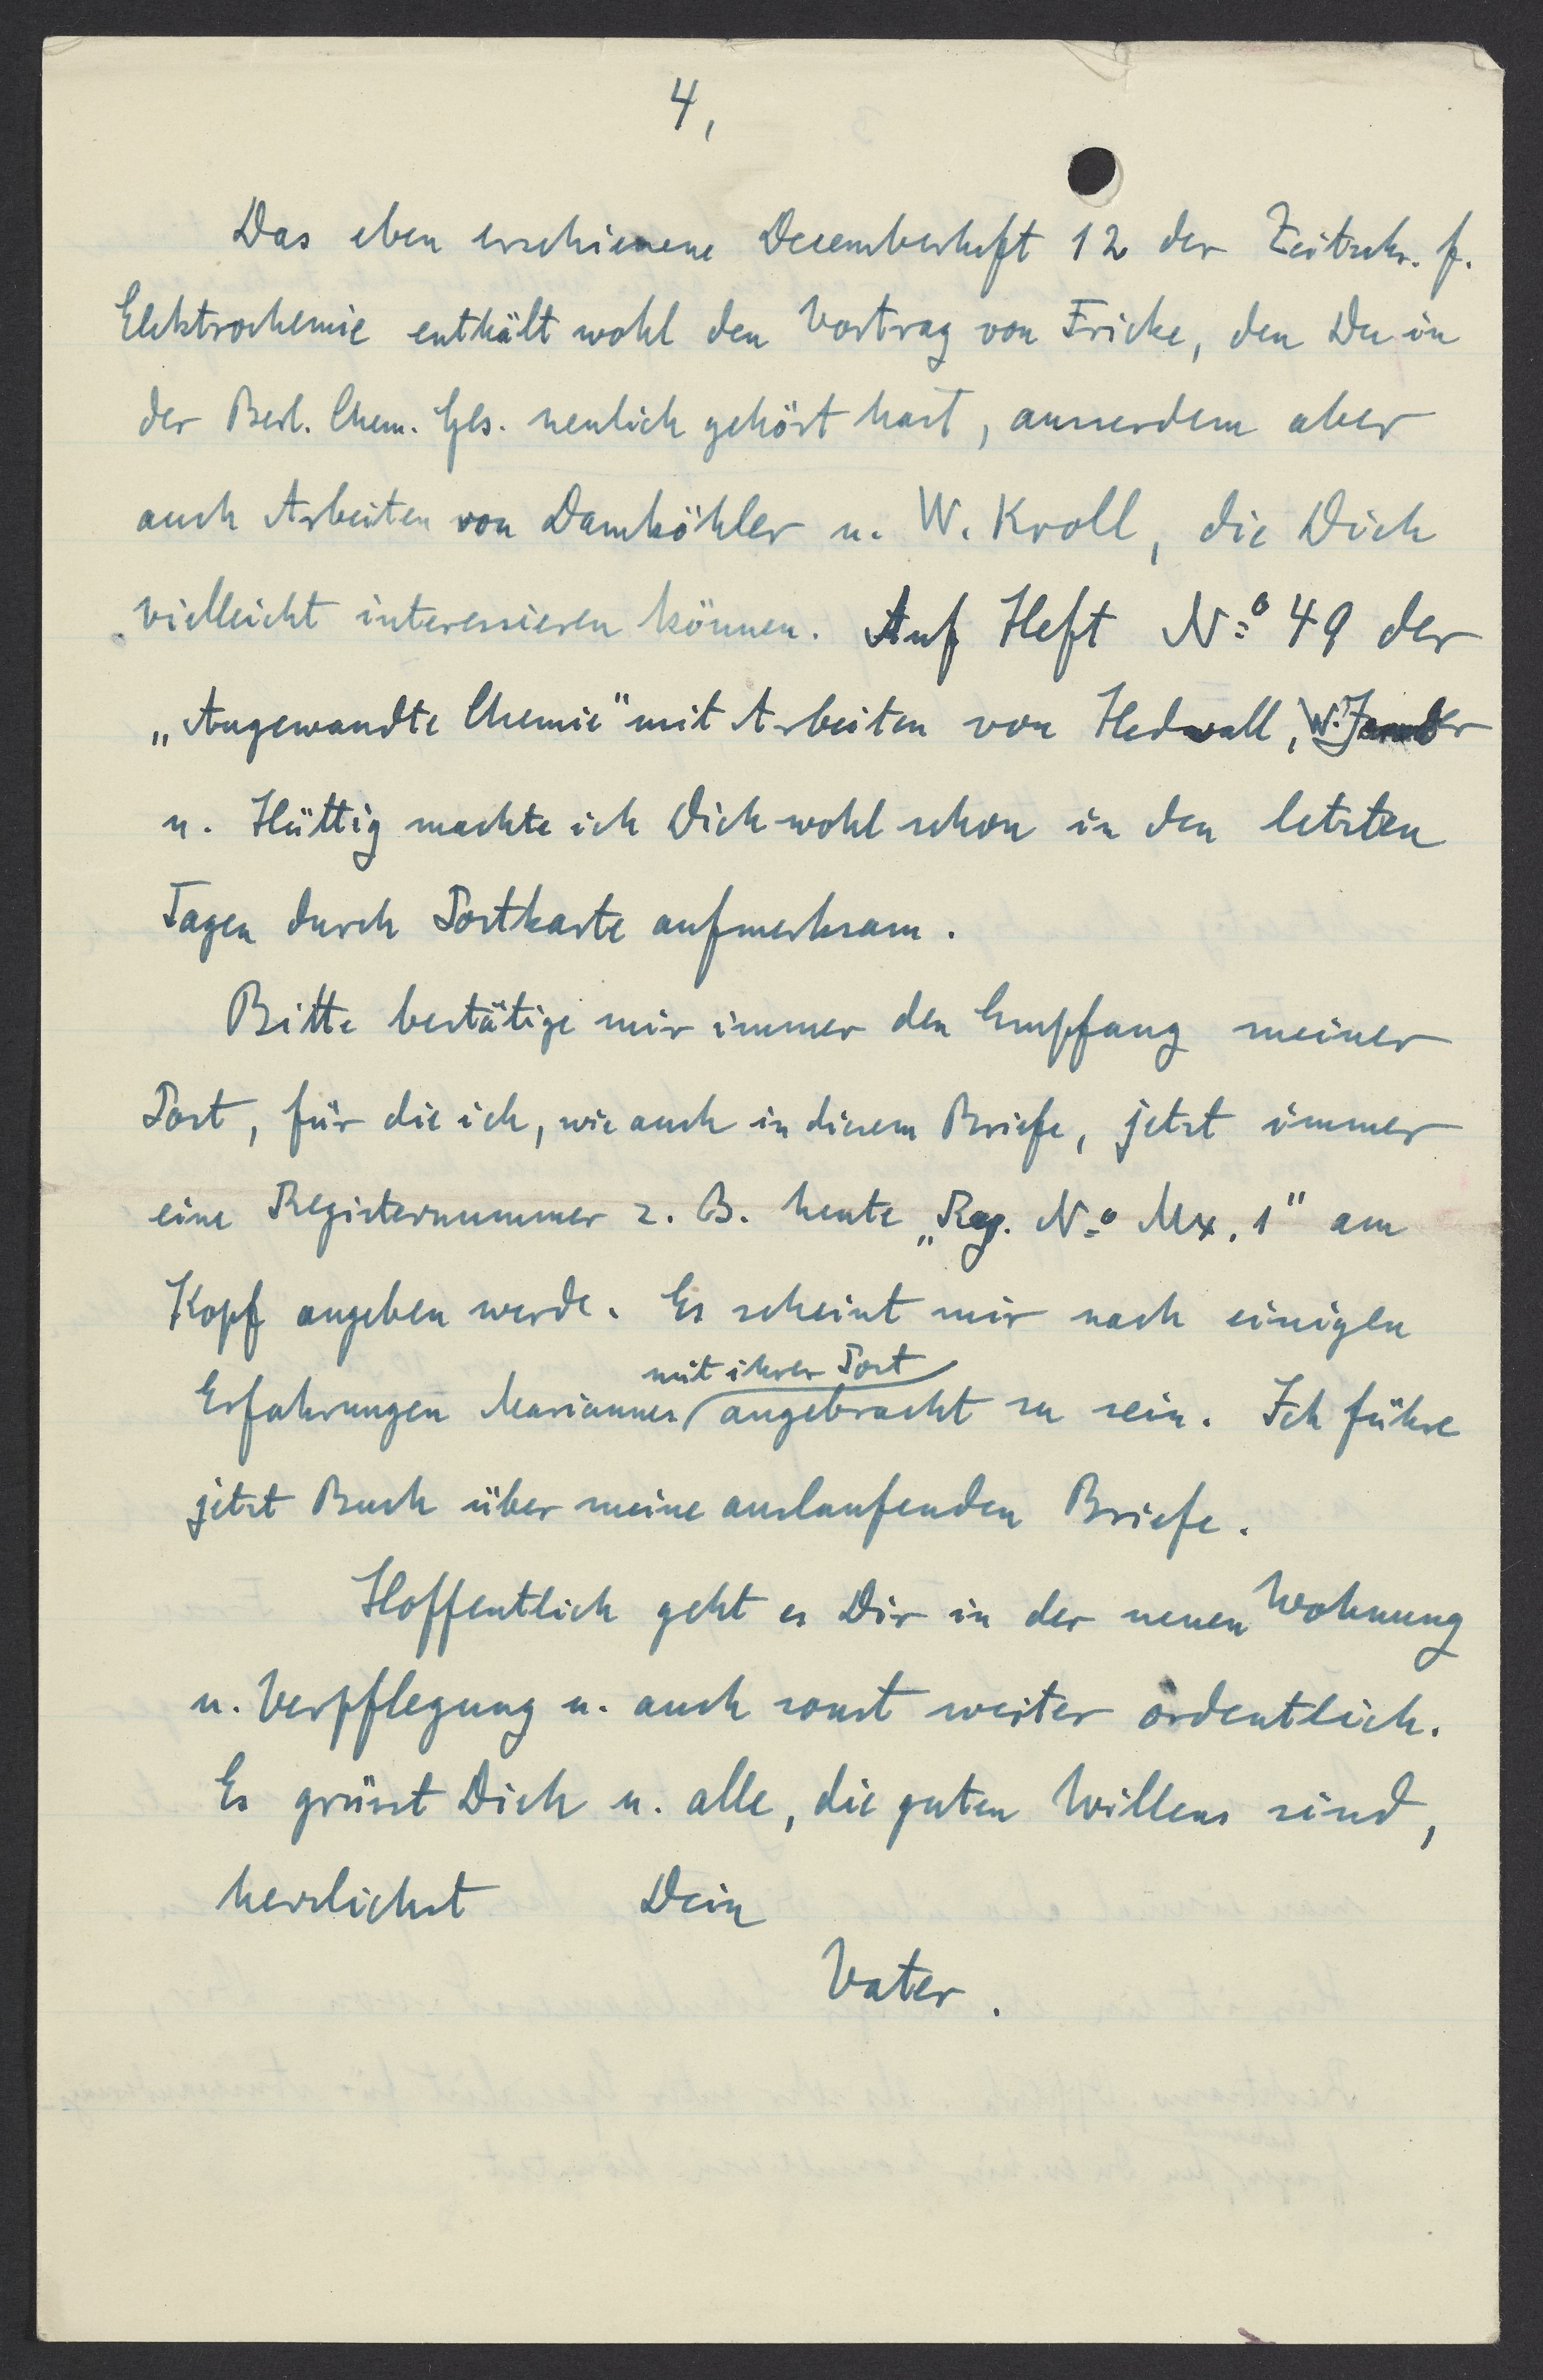 4,
Das eben erschienene Decemberheft 12 der Zeitschr. f.
Elektrochemie enthält wohl den Vortrag von Fricke, den Du in
der Berl. Chem. Ges. neulich gehört hast, ausserdem aber
auch Arbeiten von Damköhler u. W. Kroll, die Dich
vielleicht interessieren können. Auf Heft No 49 der
„Angewandte Chemie" mit Arbeiten von Hedwall, W. Jander
u. Hüttig machte ich Dich wohl schon in den letzten
Tagen durch Postkarte aufmerksam.
Bitte bestätige mir immer den Empfang meiner
Post, für die ich, wie auch in diesem Briefe, jetzt immer
eine Registernummer z. B. heute „Reg. No Mx. 1" am
Kopf angeben werde. Es scheint mir nach einigen
mit ihrer Post
Erfahrungen Mariannes angebracht zu sein. Ich führe
jetzt Buch über meine auslaufenden Briefe.
Hoffentlich geht es Dir in der neuen Wohnung
u. Verpflegung u. auch sonst weiter ordentlich.
Es grüsst Dich u. alle, die guten Willens sind,
herzlichst Dein
Vater.